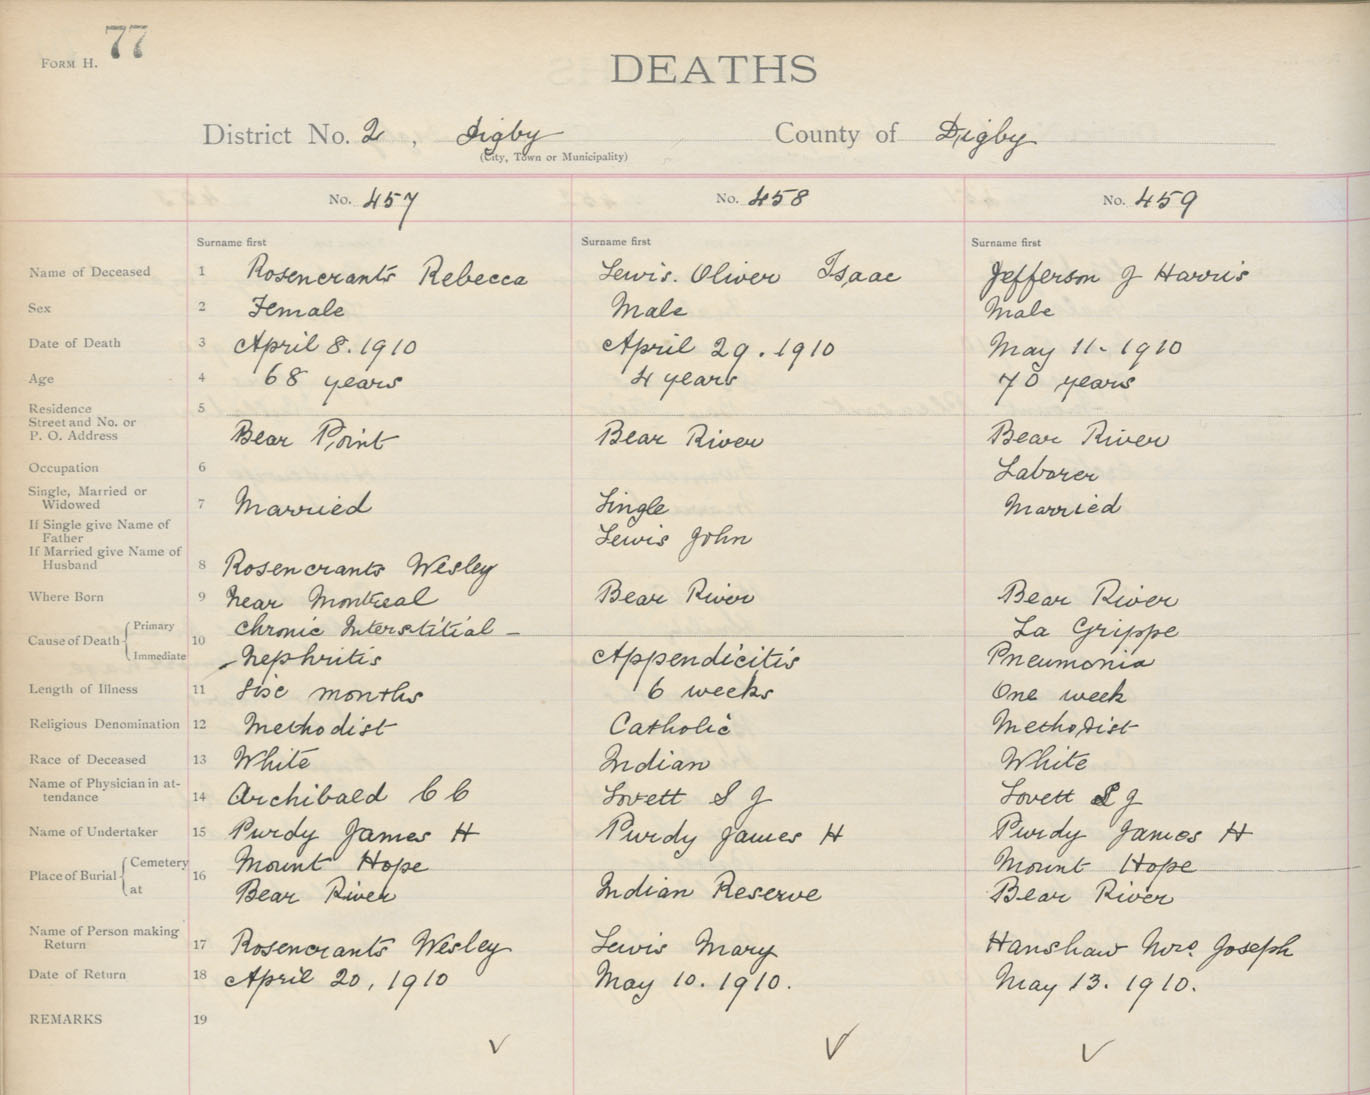 77
FORM H.
DEATHS
District No. 2, Digby County of Digby
(City, Town or Municipality)
No. 457 No. 458 No. 459
Surname first Surname first Surname first
Name of Deceased 1 Rosencrants Rebecca Lewis. Oliver Isaac Jefferson J Harris
Sex 2 Female Male Male
Date of Death 3 April 8. 1910 April 29. 1910 May 11. 1910
Age 4 68 years 4 years 70 years
Residence 5
Street and No. or
P. O. Address Bear Point Bear River Bear River
Occupation 6 Laborer
Single, Married or
Widowed 7 Married Single Married
If Single give Name of
Father Lewis John
If Married give Name of
Husband 8 Rosencrants Wesley
Where Born 9 Near Montreal Bear River Bear River
Cause of Death Primary 10 Chronic Interstitial - La Grippe
Immediate Nephritis Appendicitis Pneumonia
Length of Illness 11 Six months 6 weeks One week
Religious Denomination 12 Methodist Catholic Methodist
Race of Deceased 13 White Indian White
Name of Physician in at-
tendance 14 Archibald C C Lovett S J Lovett S J
Name of Undertaker 15 Purdy James H Purdy James H Purdy James H
Place of Burial Cemetery 16 Mount Hope Mount Hope
at Bear River Indian Reserve Bear River
Name of Person making
Return 17 Rosencrants Wesley Lewis Mary Hanshaw Mrs. Joseph
Date of Return 18 April 20, 1910 May 10. 1910. May 13. 1910.
REMARKS 19